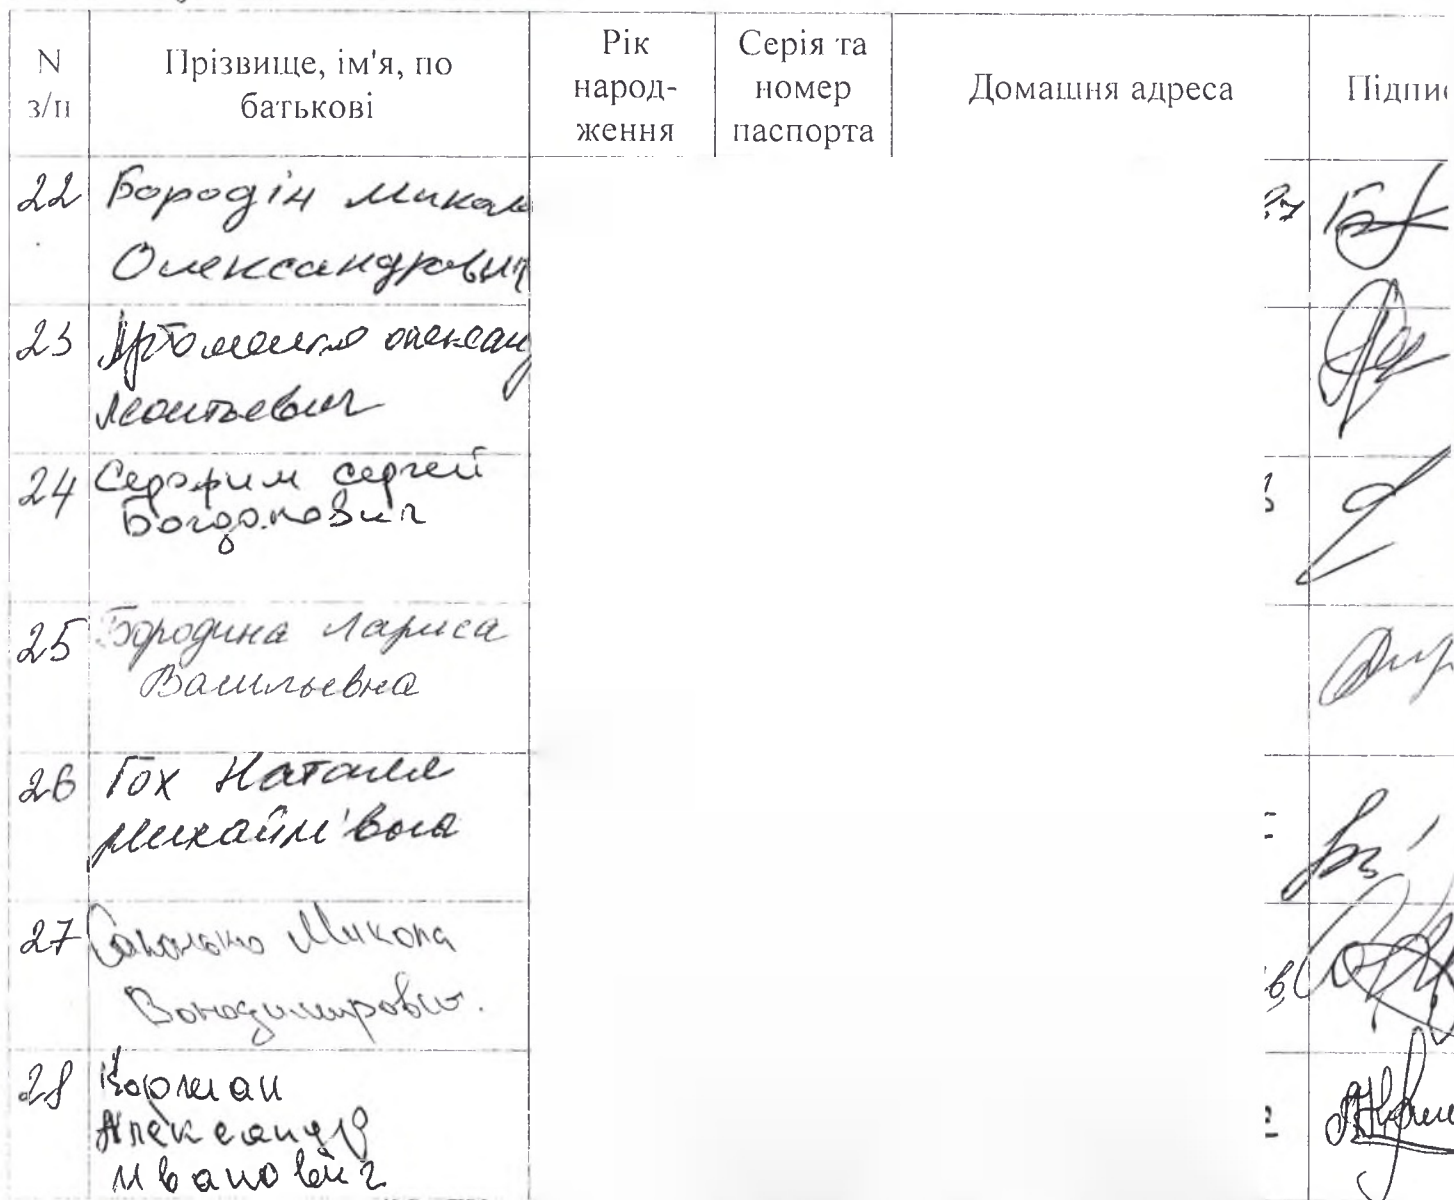 N з/п
Прізвище, ім'я, по батькові
Рік народ- ження
Серія та номер паспорта
Домашня адреса
Підпис
22 Бородін Микола
Олександрович
23 олександ
Леонтьевич
24 Серафим сергей
Богданович
25 Бородина Лариса
Васильевна
26 Гох Наталія
Михайлівна
27 Микола
Володимирович.
28 Корман
Александр
Иванович